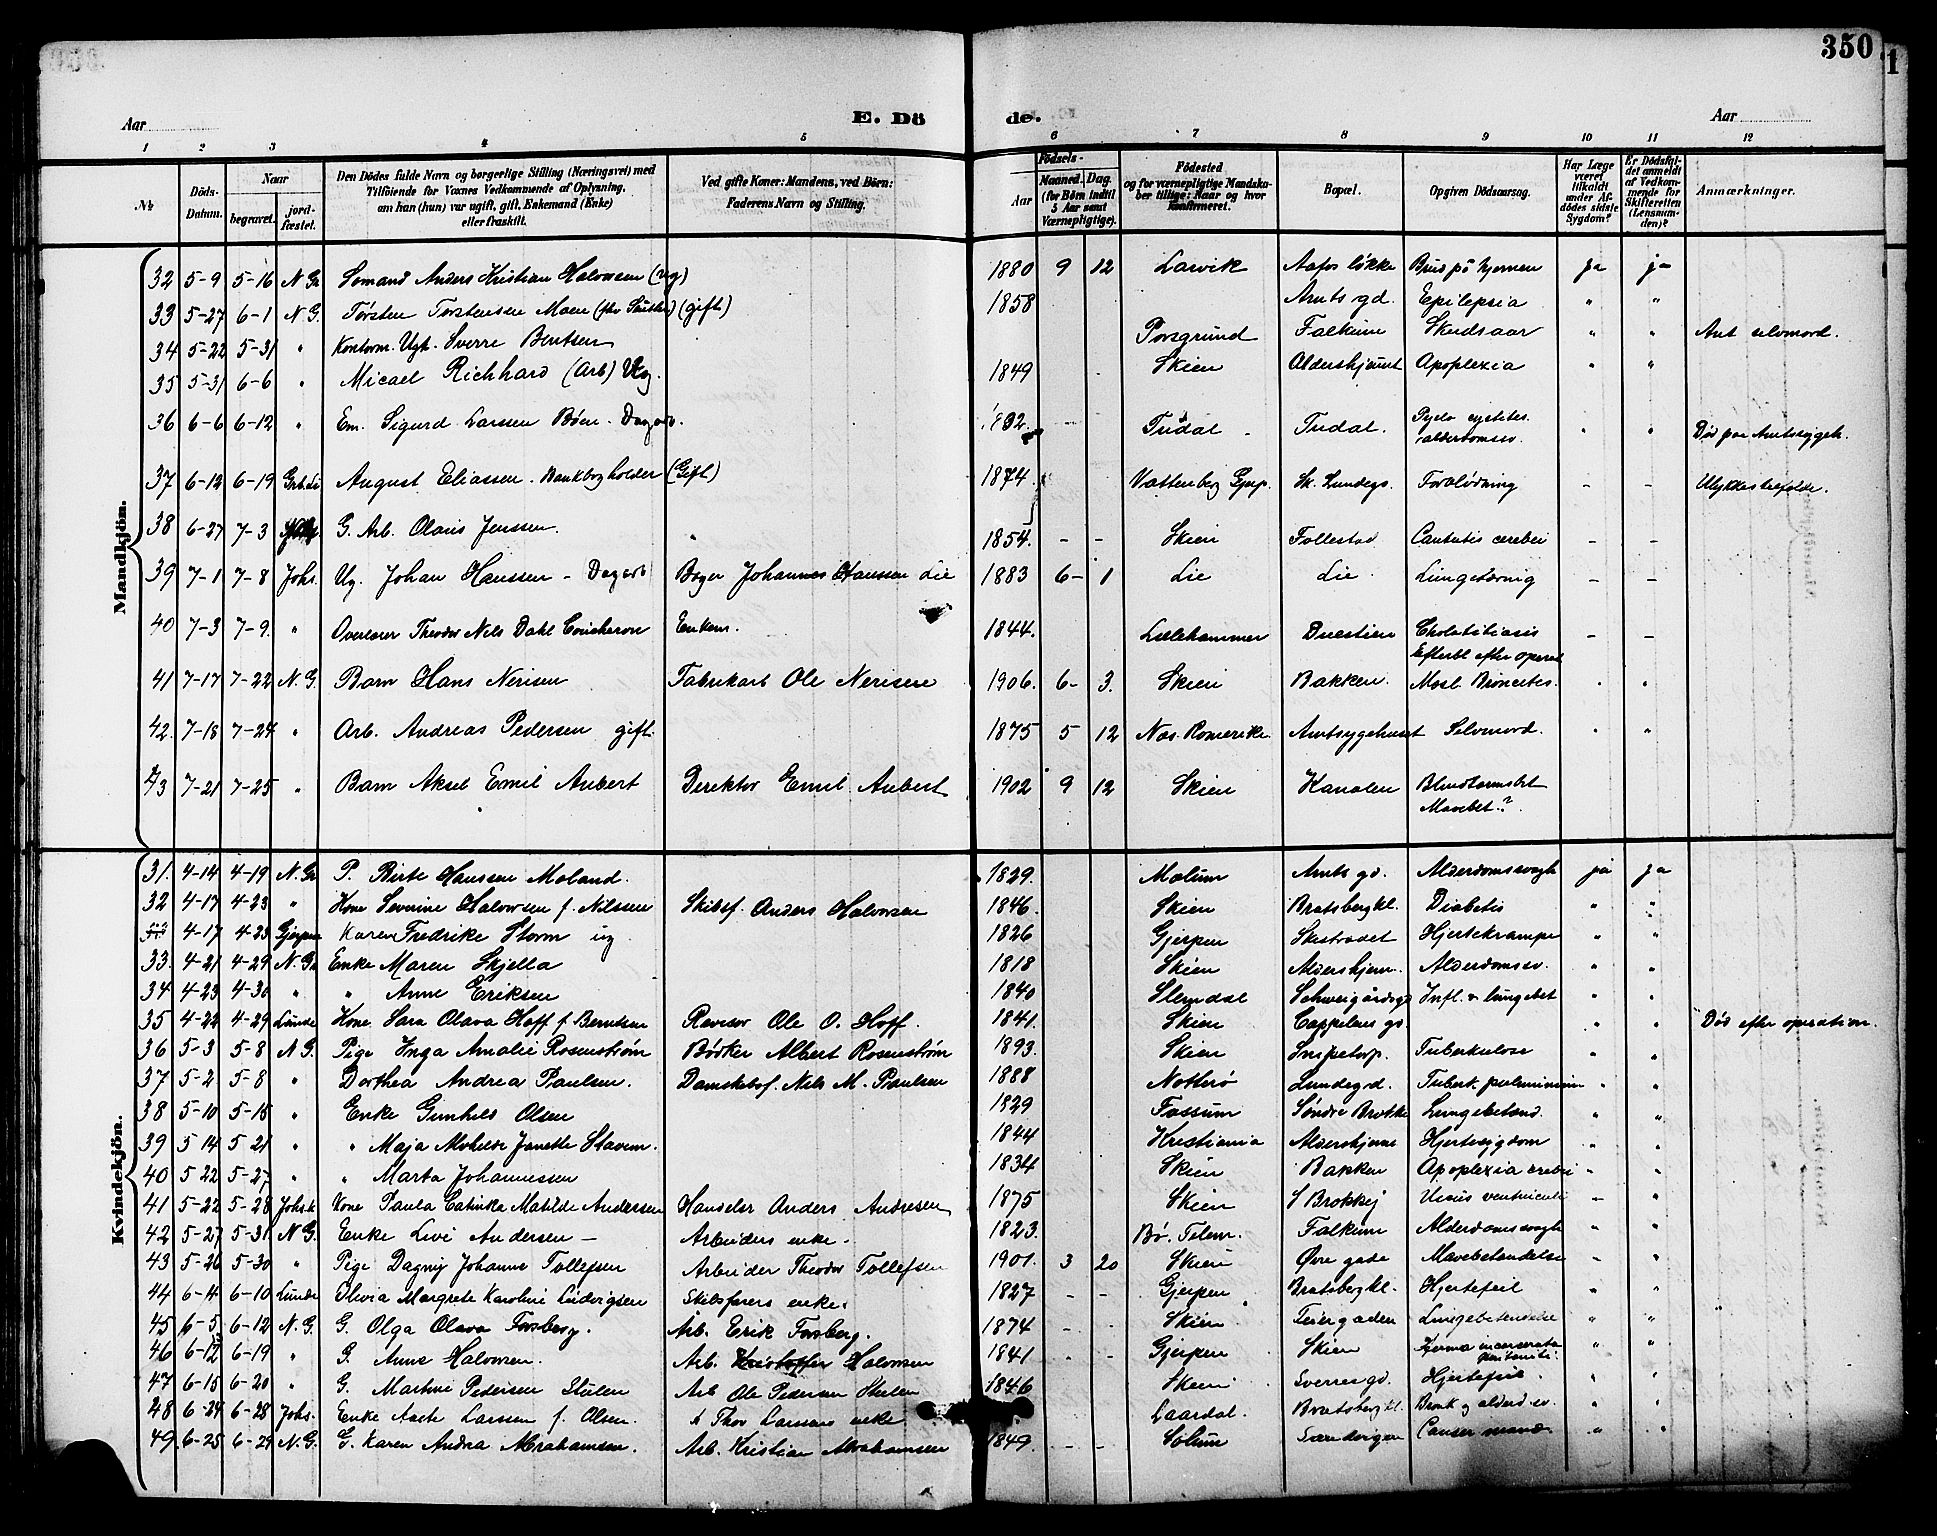 350
1
Aar
E. Dö
de.
Aar
1 2 3 4 5 6 7 8 9 10 11 12
№
Döds-Datum.
Naar
begravet.
jord-fæstet.
Den Dödes fulde Navn og borgerlige Stilling (Næringsvei) med
Tilföiende for Voxnes Vedkommende af Oplysning,
om han (hun) var ugift, gift, Enkemand (Enke)
eller fraskilt.
Ved gifte Koner: Mandens, ved Börn:
Faderens Navn og Stilling.
Födsels-
Aar
Maaned. Dag.
(for Börn indtil
5 Aar samt
Værnepligtige).
Födested
og for værnepligtige Mandska-
ber tillige: Naar og hvor
konfirmeret.
Bopæl.
Opgiven Dödsaarsag.
Har Læge
været
tilkaldt
under Af-
dödes sidste
Sygdom?
Er Dödsfal-
det anmeldt
af Vedkom-
mende for
Skifteretten
(Lensman-
den)?
Anmærkninger.
Mandkjön.
32 5-9 5-16 N Gr Sømand Anders Kristian Halvorsen (ug) 1880 9 12 Larvik Aafos løkke Brud på hjernen ja ja
33 5-27 6-1 N.G. Tørsten Torstensen Moen (gift) 1858 Amts gd. Epilepsia " "
34 5-22 5-31 " Kontorm. Ugt. Sverre Bentsen Porsgrund Falkum Skudsaar " " Ant selvmord.
35 5-31 6-6 " Micael Richhard (Arb) Ug. 1849 Skien Aldershjemt Apoplexia " "
36 6-6 6-12 " Em. Sigurd Larssen Bøen - Dagarb. Tudal Tudal. Pyelo cystites. alderdomssv. " " Død paa Amtssygeh.
37 6-12 6-19 August Eliassen - Bankbogholder (Gift) 1874 Vattenberg Gjerp. Sk. Lundegs. Forblødning - - Ulykkestilfælde.
38 6-27 7-3 G. Arb. Olaus Jenssen. " 1854. - - Skien Follestad cerebri - -
39 7-1 7-8 Johs. Ug. Johan Hanssen - Dagarb Bager Johannes Hanssen Lie 1883 6- 1 Lie Lie Lungetæring - -
40 7-3 7-9. " Overlærer Theodor Nils Dahl Coucheron Enkem. 1844. Lillehammer Duestien Cholatitiasis - -
Efterbl efter operat
41 7-17 7-22 N.G. Barn Hans Nerisen Fabrikarb Ole Nerisen 1906. 6- 3. Skien Bakken. Mosl. Broncites. " "
42. 7-18 7-24 " Arb. Andreas Pedersen gift. 1875 5 12 Næs. Romerike. Amtssygehuset Selvmord. " "
43 7-21 7-25 " Barn Aksel Emil Aubert Direktør Emil Aubert 1902 9 12 Skien Kanalen Blindtarmsbet
Mavebet.?
Kvindekjön.
31. 4-14 4-19 N. Gr P. Birte Hanssen Moland. 1829. Melum Amts gd. Alderdomssvagh ja ja
32 4-17 4-23 " Kone Severine Halvorsen f. Nilssen Skibsf. Anders Halvorsen 1846. Skien Bratsbergkl. Diabetis " "
4-17 4-23 Gjerpen Karen Fredrike Storm ug 1826 Gjerpen Skistredet Hjertekrampe " "
33. 4-21 4-29 N. Gr Enke Maren Skjella 1818 Skien Aldershjem. Alderdomssv. " "
34 4-23 4-30 " " Anne Eriksen 1840 Slemdal Schweigårdsgd Infl. & lungebet " "
35 4-22 4-29 Lunde Kone Sara Olava Hoff f Berntsen Revisor Ole O. Hoff. 1841. Skien Cappelens gd. " " Død efter operation.
36 5-3 5-8 N G. Pige Inga Amalie Rosenstrøm Bødker Albert Rosenstrøm 1893. Skien Snipetorp. Tuberkulose " "
37 5-2 5-8 " Dorthea Andrea Paulsen. Damskibsf. Nils M. Paulsen 1888 Nøtterø Lundegd. Tuberk. pulmunium " "
38 5-10 5-15 " Enke Gunhild Olsen 1829 Fossum Søndre Brekke Lungebetænd. " "
39 5 14 5 21 " " Maja Mathilde Janette Stavem. 1844 Kristiania Aldershjem Hjertesygdom " "
40 5 22 5-27 " " Marta Johannessen 1834 Skien Bakken Apoplexia cerebri " "
41 5-22 5-28 Johs.k Kone Paula Catinka Matilde Andersen Handelsr Anders Andresen 1875 Skien S Brekkej Ulcus ventriculi - "
42 5-27 5-31 N.G. Enke Live Andersen - Arbeiders enke. 1823. Bø. Telem. Falkum Alderdomssvagh " "
43 5-26 5-30 " Pige Dagny Johanne Tollefsen Arbeider Theodor Tollefsen 1901. 3 20 Skien Øvre gade Mavebetændelse - "
44 6-4 6-10 Lunde Olivia Margrete Karoline Ludvigsen Skibsførers enke. 1827 - - Gjerpen Bratsbergkl. Hjertefeil " "
45 6-5 6-12 N.G. G. Olga Olava Forsberg. Arb. Erik Forsberg. 1874 - - Skien Feiergaden Lungebetændelse " "
46 6-12 6-19 " G. Anne Halvorsen. Arb. Kristoffer Halvorsen 1841 Gjerpen Skien Hjerma incarserata " "
47 6-15 6-20 " G. Martine Pedersen Stulen Arb Ole Pedersen Stulen 1846 Skien Sverresgd. Hjertefeil. " "
48 6-24 6-28 Johs. Enke Aaste Larssen f. Olsen. A Thor Larssens enke Laardal. Bratsbergkl. Bronk og alderd.sv. " "
49 6-25 6-29 N.G. G. Karen Andrea Abrahamsen. Arb. Kristian Abrahamsen 1849. - - Solum Cancer mamæ " "